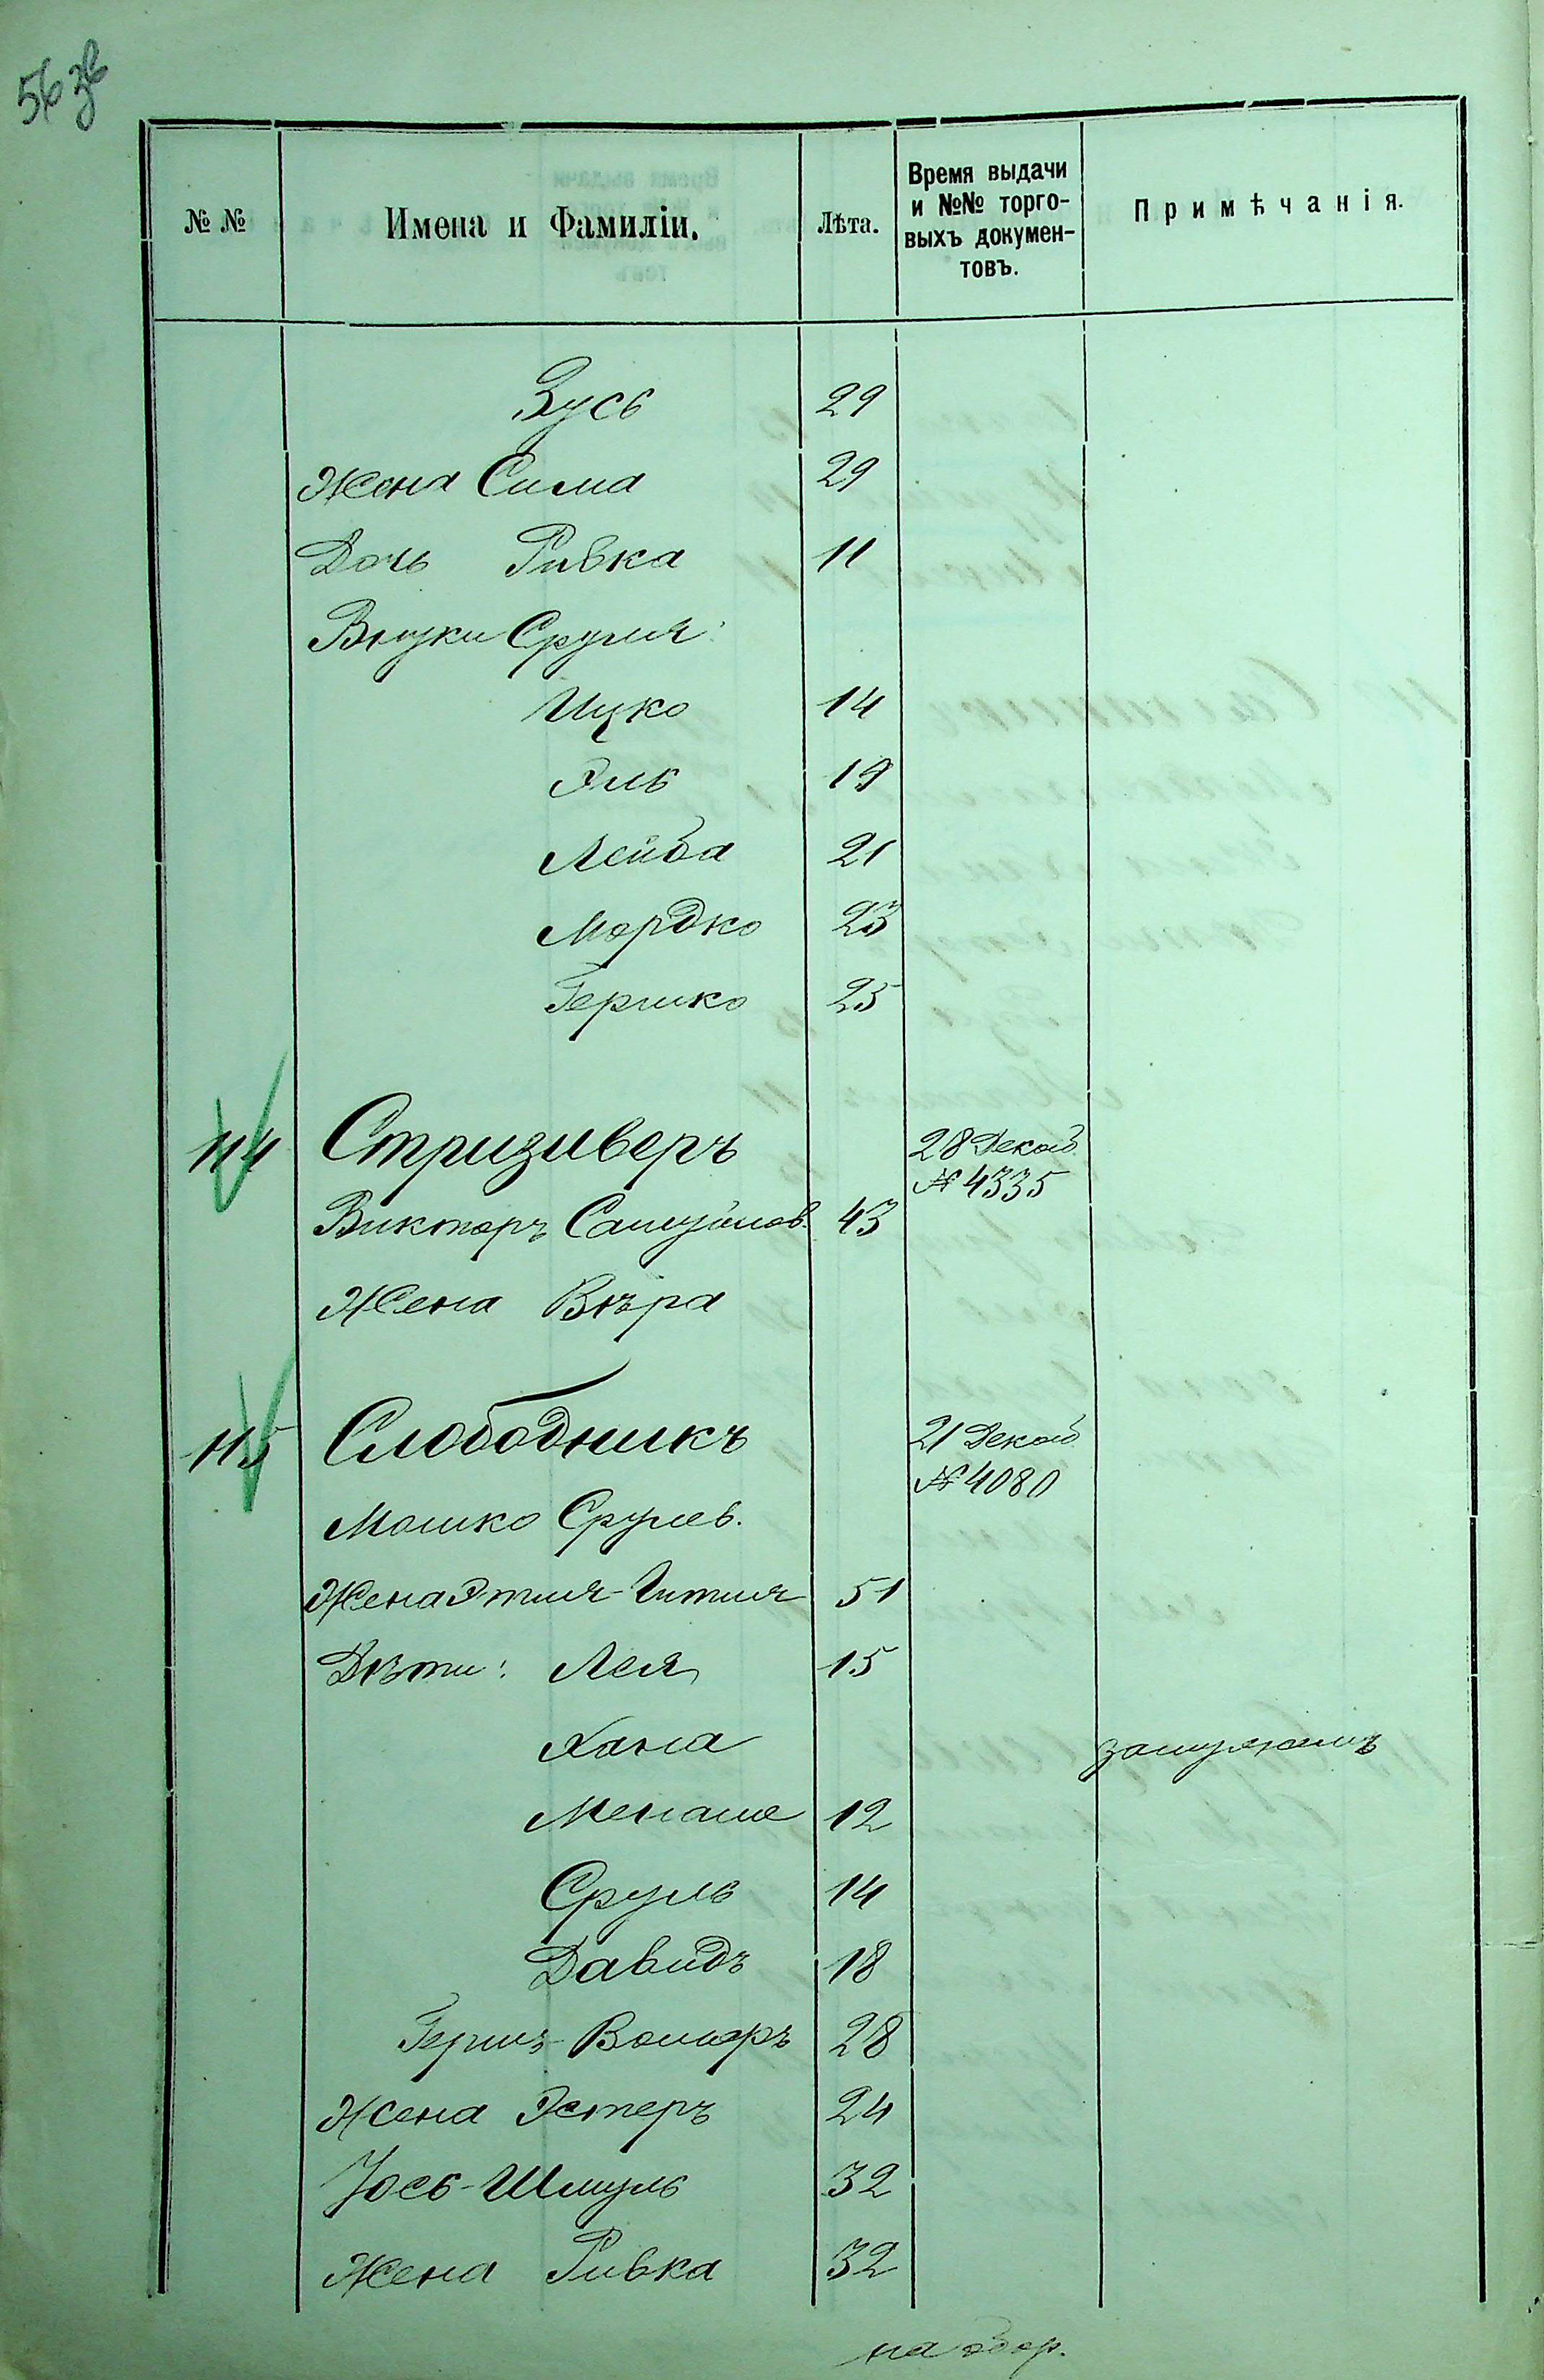 56 зв
№ №
Имена и Фамиліи.
Лѣта.
Время выдачи
и №№ торго-
выхъ докумен-
товъ.
Примѣчанія.
Зусь 29
Жена Сима 29
Дочь Ривка 11
Внуки Сруля:
Ицко 14
Эль 19
Лейба 21
Мордко 23
Гершко 25
114 Стризиверъ 28 Декаб.
№ 4335
Викторъ Самуйлов. 43
Жена Вѣра
115 Слободникъ 21 Декаб
№ 4080
Мошко Срулев.
Жена Этля-Гитля 51
Дѣти: Лея 15
Хана замужемъ
Менаше 12
Сруль 14
Давидъ 18
Гершъ-Вольфъ 28
Жена Эстеръ 24
Іось-Шмуль 32
Жена Ривка 32
на обор.